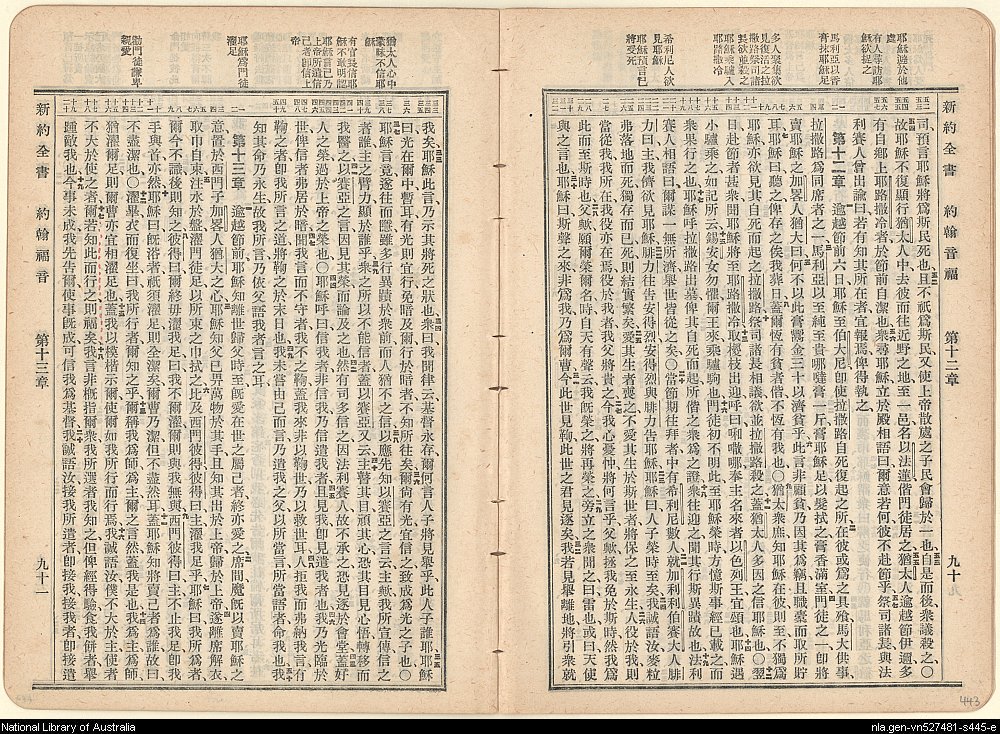 新約全書 約翰音福 第十二章 九十九
耶穌避於他處
有人尋訪耶穌欲捉之
馬利亞以香膏抹耶穌足
多人聚集欲見復活之拉撒路祭司諸長欲並殺之
耶穌乘驢入耶路撒冷
希利尼人欲見耶穌
耶穌預言己將受死
司預言耶穌將爲斯民死也且不祇爲斯民又使上帝散處之子民會歸於一也自是而後衆議殺之〇
故耶穌不復顯行猶太人中去彼而往近野之地至一邑名以法蓮偕門徒居之猶太人逾越節伊邇多
有自鄉上耶路撒冷者於節前自潔也衆尋耶穌立於殿相語曰爾意若何彼不赴節乎祭司諸長與法
利賽人曾出諭曰若有知其所在者宜報焉俾得執之
第十二章 逾越節前六日耶穌至伯大尼卽使拉撒路自死復起之所在彼或爲之具飱馬大供事
拉撒路爲同席者之一馬利亞以至純至貴哪噠香膏一斤膏耶穌足以髮拭之膏香滿室門徒之一卽將
賣耶穌之加畧人猶大曰何不以此膏鬻金三十以濟貧乎此言非顧貧乃因其爲竊且職橐而取所貯
耳耶穌曰聽之俾存之俟我葬日蓋爾恆有貧者偕不恆有我也〇猶太衆庶知耶穌在彼則至不獨爲
耶穌亦欲見其自死而起之拉撒路祭司諸長相議欲並拉撒路殺之蓋猶太人多因之信耶穌也〇翌
日赴節者甚衆聞耶穌將至耶路撒冷取椶枝出迎呼曰㗑嘥哪奉主名來者以色列王宜頌也耶穌遇
小驢乘之如記所云錫安女勿懼爾王來乘驢駒也門徒初不明此至耶穌榮時方憶斯事經已載之而
衆果行之也耶穌呼拉撒路出墓俾其自死而起所偕之衆爲之證衆往迎之聞其行斯異蹟故也而法利
賽人相語曰爾謀一無所濟舉世皆從之矣〇當節期往拜者中有希利尼數人就加利利伯賽大人腓
力曰主我儕欲見耶穌腓力往告安得烈安得烈與腓力告耶穌耶穌曰人子榮時至矣我誠語汝麥粒
弗落地而死獨存而已死則結實繁矣愛其生者喪之不愛其生於斯世者將保之至永生人役於我則
當從我我所在役我者亦在焉役於我者我父將貴之今我心憂忡將何言乎父歟拯我免於斯時然我爲
此而至斯時也父歟願爾榮爾名時自天有聲云我旣榮之將再榮之旁立之衆聞之曰雷也或曰天使
與之言也耶穌曰斯聲之來非爲我乃爲爾曹今此世見鞫此世之君見逐矣我若見舉離地將引衆就
新約全書 約翰福音 第十三章 九十一
猶太人心中蒙昧不信耶穌
有官長信耶穌不敢明認
耶穌言己乃上帝所遣信己者卽信上帝
耶穌爲門徒濯足
勸門徒謙卑親愛
我矣耶穌此言乃示其將死之狀也衆曰我聞律云基督永存爾何言人子將見舉乎此人子誰耶耶穌
曰光在爾中暫耳有光則宜行免暗及爾行於暗者不知所往矣爾尙有光宜信之致成爲光之子也〇
耶穌言竟遂往而隱雖多行異蹟於衆前而人猶不之信以應先知以賽亞之言云主歟我所宣傳信之
者誰主之臂力顯於誰乎衆之所以不能信者蓋以賽亞又云主瞽其目頑其心恐其目見心悟轉移而
我醫之以賽亞之言因見其榮而論及之也然有司多信之因法利賽人故不承之恐見逐於會堂蓋好
人之榮過於上帝之榮也〇耶穌呼曰信我者非信我乃信遣我者且見我卽見遣我者也我乃光臨於
世俾信我者弗居於暗聞我言而不守者我不鞫之蓋我來非以鞫世乃以救世耳人拒我而弗納我言有
鞫之者卽我所言之道將鞫之於末日也我未嘗由己而言乃遣我之父以所當言所當語者命我也我
知其命乃永生故我所言乃依父語我者言之耳
第十三章 逾越節前耶穌知離世歸父時至旣愛在世之屬己者終亦愛之席間魔旣以賣耶穌之
意置於西門子加畧人猶大之心耶穌知父已畀萬物於其手且知其出於上帝歸於上帝遂離席解衣
取巾自束注水於盤濯門徒足以所束之巾拭之比及西門彼得彼得曰主濯我足乎耶穌曰我所爲者
爾今不識後則知之彼得曰爾終毋濯我足曰我不爾濯爾則與我無與西門彼得曰主不止我足卽我
手與首亦然耶穌曰旣浴者祇須濯足則全潔矣爾曹乃潔但不盡然耳蓋耶穌知將賣己者爲誰故曰
不盡潔也〇濯畢衣而復坐曰我所行者爾知之乎爾稱我爲師爲主爾之言然蓋我是也我爲主爲師
猶濯爾足則爾曹亦宜相濯足也蓋我以模楷示爾使爾如我所行而行焉我誠語汝僕不大於主使者
不大於使之者爾若知此而行之則福矣我言非槪指爾衆我所選者我知之但俾經得驗食我餅者舉
踵敵我也今事未成我先告爾使事旣成可信我爲基督我誠語汝接我所遣者卽接我接我者卽接遣
National Library of Australia
nla.gen-vn527481-s445-e
443